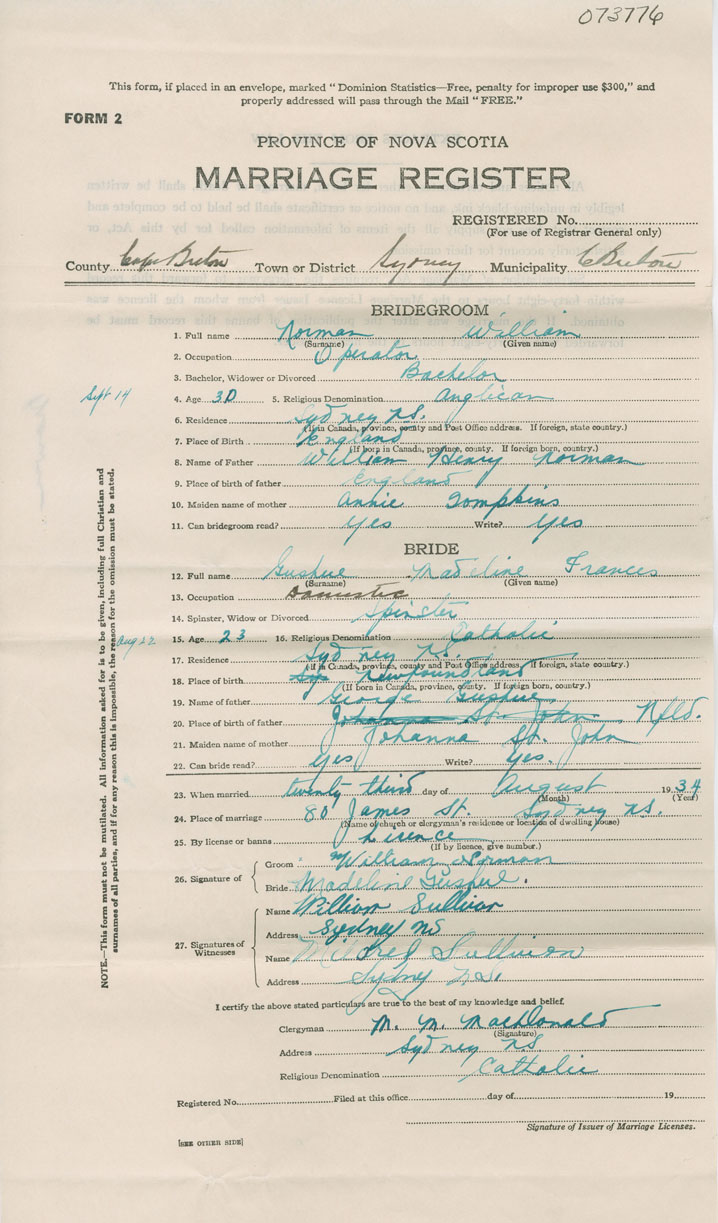 073776
This form, if placed in an envelope, marked "Dominion Statistics—Free, penalty for improper use $300," and
properly addressed will pass through the Mail "FREE."
FORM 2
PROVINCE OF NOVA SCOTIA
MARRIAGE REGISTER
REGISTERED No.
(For use of Registrar General only)
County Cape Breton Town or District Sydney Municipality C Breton
BRIDEGROOM
1. Full name Norman William
(Surname) (Given name)
2. Occupation Operator
3. Bachelor, Widower or Divorced Bachelor
Sept 14
4. Age 30 5. Religious Denomination Anglican
6. Residence Sydney N.S.
(If in Canada, province, county and Post Office address. If foreign, state country.)
7. Place of Birth England
(If born in Canada, province, county. If foreign born, country.)
8. Name of Father William Henry Norman
9. Place of birth of father England
10. Maiden name of mother Annie Tompkins
11. Can bridegroom read? Yes Write? Yes
BRIDE
12. Full name Gushue Madeline Frances
(Surname) (Given name)
13. Occupation Domestic
14. Spinster, Widow or Divorced Spinster
Aug 22
15. Age 23 16. Religious Denomination Catholic
17. Residence Sydney N.S.
(If in Canada, province, county and Post Office address. If foreign, state country.)
18. Place of birth Sy Newfoundland
(If born in Canada, province, county. If foreign born, country.)
19. Name of father George Gushue
20. Place of birth of father Johanna St. John Nfld.
21. Maiden name of mother Johanna St. John
22. Can bride read? Yes Write? Yes.
23. When married twenty third day of August 1934
(Month) (Year)
24. Place of marriage 80 James St. Sydney N.S.
(Name of church or clergyman's residence or location of dwelling house)
25. By license or banns Licence
(If by licence, give number.)
26. Signature of Groom William Norman
Bride Madeline Gushue.
27. Signatures of Witnesses
Name William Sullivan
Address Sydney NS
Name Mildred Sullivan
Address Sydney N.S.
I certify the above stated particulars are true to the best of my knowledge and belief.
Clergyman M. M. MacDonald
(Signature)
Address Sydney N.S
Religious Denomination Catholic
Registered No. Filed at this office day of 19
Signature of Issuer of Marriage Licenses.
[SEE OTHER SIDE]
NOTE.—This form must not be mutilated. All information asked for is to be given, including full Christian and
surnames of all parties, and if for any reason this is impossible, the reason for the omission must be stated.